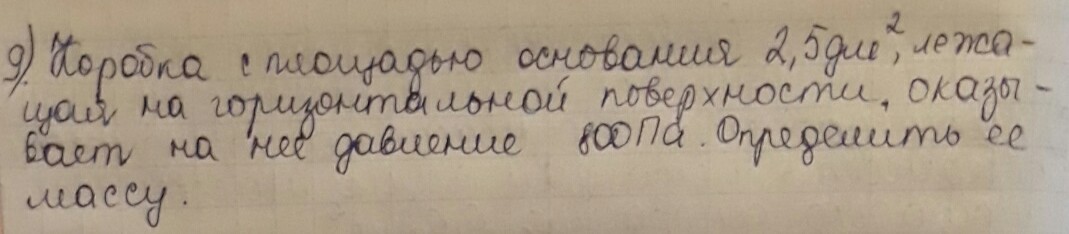 9) Коробка с площадью основания 2,5дм², лежа-
щая на горизонтальной поверхности, оказы-
вает на неё давление 800Па. Определить её
массу.